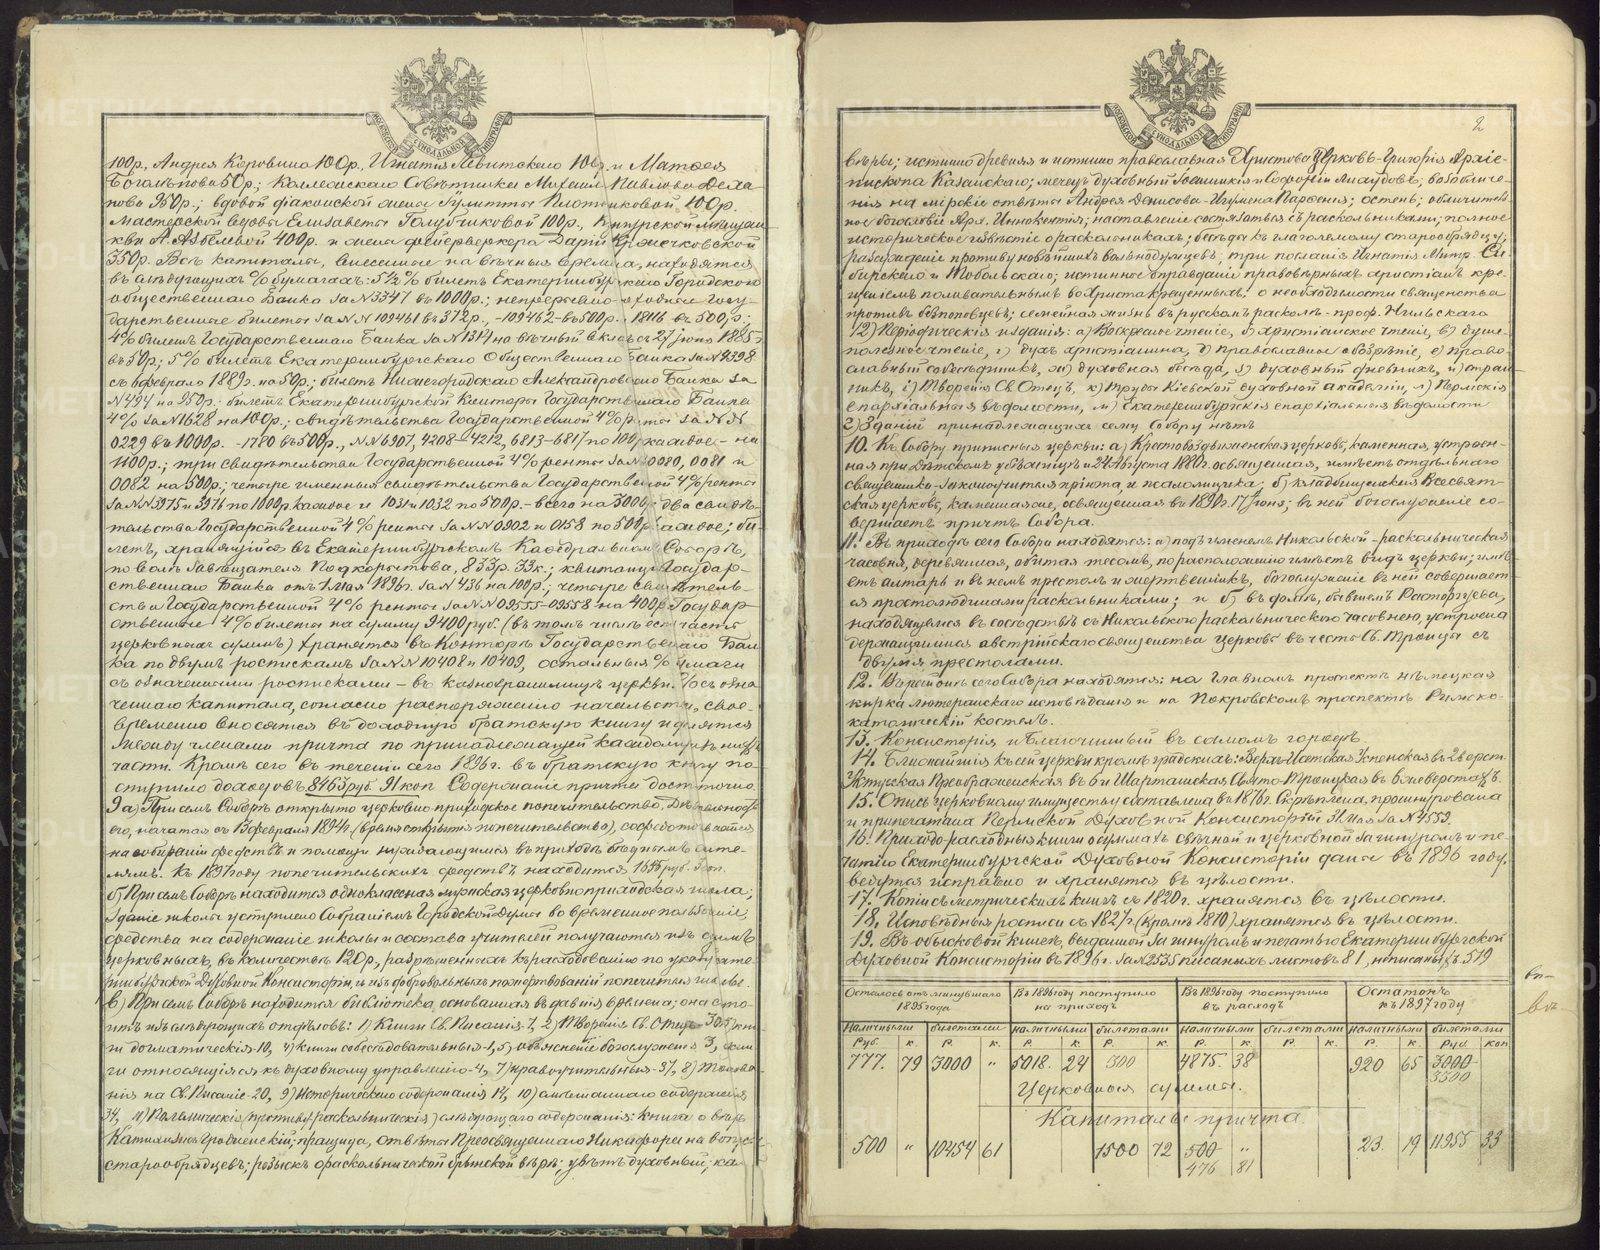 100р., Андрея Коровина 100р., Игнатія Левитскаго 100р. и Матѳея
Боголѣпова 50р.; Коллежскаго Совѣтника Михаила Павлова Дела-
нова 950р.; вдовой діаконской жены Гулитты Плотниковой 100р.
Мастерской вдовы Елизаветы Голубчиковой 100р., Кунгурской мѣщан
ки А. 400р. и жены фейерверкера Даріи
350р. Всѣ капиталы, внесенные на вѣчныя времена, находятся
въ слѣдующихъ % бумагахъ: 5½% билетъ Екатеринбургскаго Городскаго
общественнаго Банка за № 3347 въ 1000р.; непрерывно-доходные Госу-
дарственные билеты за №№ 109461 въ 372р., -109462- въ 500р. 18116 въ 500р.;
4% билетъ Государственнаго Банка за № 1314 на вѣчный вкладъ съ 27 іюня 1885г
въ 50р.; 5% билетъ Екатеринбургскаго Общественнаго Банка за № 9398
съ 6 февраля 1889г. на 50р.; билетъ Нижегородскаго Александровскаго Банка за
№ 494 на 250р. билетъ Екатеринбургской Конторы Государственнаго Банка
4% за № 1628 на 100р.; свидѣтельства Государственной 4% ренты за №№
0229 въ 1000р. -1780 въ 500р., №№ 6907, 4208-4212, 6813-6817 по 100р каждое - на
1100р.; три свидѣтельства Государственной 4% ренты за № 0080, 0081 и
0082 на 500р.; четыре именныя свидѣтельства Государственной 4% ренты
за №№ 3975 и 3976 по 1000р каждое и 1031 и 1032 по 500р. - всего на 3000р; два свидѣ-
тельства Государственной 4% ренты за №№ 0902 и 0158 по 500р каждое; би-
летъ, хранящійся въ Екатеринбургскомъ Каѳедральномъ Соборѣ,
по волѣ завѣщателя Подкорытова, 8333р. 33к.; квитанція Государ-
ственнаго Банка отъ 1896г. за № 436 на 100р.; четыре свидѣтель-
ства Государственной 4% ренты за №№ 09555-09558 на 400р. Государ
ственные 4% билеты на сумму 9400руб. (въ томъ числѣ есть часть
церковныхъ суммъ) хранятся въ Конторѣ Государственнаго Бан
ка по двумъ роспискамъ за №№ 10408 и 10409, остальныя % бумаги
съ означенными росписками - въ казнохранилищѣ церкви. % съ озна
ченнаго капитала, согласно распоряженію начальства, свое-
временно вносятся въ доходную братскую книгу и дѣлятся
между членами причта по принадлежащей каждому изъ нихъ
части. Кромѣ сего въ теченіи сего 1896г. въ братскую кружку по-
ступило доходовъ 8463руб. 91коп. Содержаніе причта достаточно.
9 а) При семъ Соборѣ открыто церковно-приходское попечительство. Дѣятельность
его, начатая съ 13 февраля 1894г. (время открытія попечительства), сосредоточивается
на собираніи средствъ и помощи нуждающимся въ приходѣ бѣднымъ жите-
лямъ. Къ 1897 году попечительскихъ средствъ находится 1645 руб. коп.
б) При семъ Соборѣ находится одноклассная мужская церковноприходская школа;
зданіе школы устроено Собраніемъ Городской Думы во временное пользованіе;
средства на содержаніе школы и состава учителей получаются изъ суммъ
церковныхъ, въ количествѣ 120р., разрѣшенныхъ къ расходованію по указу Екате
ринбургской Духовной Консисторіи, и изъ добровольныхъ пожертвованій попечителя школы.
в) При семъ Соборѣ находится библіотека, основанная въ давнія времена; она состо-
итъ изъ слѣдующихъ отдѣловъ: 1) Книги Св. Писанія 7, 2) Творенія Св. Отцъ - 30, 3) кни
ги догматическія-10, 4) книги собесѣдовательныя-1, 5) объясненіе богослуженія 3, кни
ги относящіяся къ духовному управленію-4, 7) нравоучительныя-57, 8) Толкова-
нія на Св. Писаніе-20, 9) Историческаго содержанія 14, 10) смѣшаннаго содержанія
34, 11) Полемическія (противураскольническія) слѣдующаго содержанія: книга о вѣрѣ
Катихизисъ Гродненскій; пращица, отвѣты Преосвященнаго Никифора на вопро-
старообрядцевъ; розыскъ о раскольнической брынской вѣрѣ; увѣтъ духовный; ка-
2
вѣры; истинно древняя и истинно православная Христова Церковь-Григорія Архіе-
пископа Казанскаго; мечецъ духовный Іоанникія и Софронія Лихудовъ; возобличе-
нія на мірскіе отвѣты Андрея Денисова - Игумена Парѳенія; остенъ; обличитель
ное богословіе Арх. Иннокентія; наставленіе состязаться съ раскольниками; полное
историческое извѣстіе о раскольникахъ; бесѣды къ глаголемому старообрядцу;
разсужденіе противу новѣйшихъ вольнодумцевъ; три посланія Игнатія Митр. Си-
бирскаго и Тобольскаго; истинное оправданіе правовѣрныхъ христіанъ кре-
щеніемъ поливательнымъ во Христа крещенныхъ; о необходимости священства
противъ безпоповцевъ; семейная жизнь въ русскомъ расколѣ - проф. Нильскаго
12) Періодическія изданія: а) Воскресное чтеніе, б) Христіанское чтеніе, в) душе-
полезное чтеніе, г) духъ христіанина, д) Православное обозрѣніе, е) Право-
славный собесѣдникъ, ж) духовная бесѣда, з) духовный дневникъ, и) стран-
никъ, і) Творенія Св. Отецъ, к) Труды Кіевской духовной академіи, л) Пермскія
епархіальныя вѣдомости, м) Екатеринбургскія епархіальныя вѣдомости
г) Зданій принадлежащихъ сему Собору нѣтъ
10. Къ Собору приписныя церкви: а) Крестовоздвиженская церковь, каменная, устроен-
ная при Дѣтскомъ убѣжищѣ и 24 Августа 1880г. освященная, имѣетъ отдѣльнаго
священника-законоучителя пріюта, и псаломщика; б) кладбищенская Всесвят-
ская церковь, каменная же, освященная въ 1890г. 17 іюня; въ ней богослуженіе со-
вершаетъ причтъ Собора.
11. Въ приходѣ сего Собора находятся: а) подъ именемъ Никольской - раскольническая
часовня, деревянная, обитая тесомъ, по расположенію имѣетъ видъ церкви; имѣ-
етъ алтарь и въ немъ престолъ и жертвенникъ, богослуженіе въ ней совершает-
ся простолюдинами раскольниками; и б) въ домѣ, бывшемъ Расторгуева,
находящемся въ сосѣдствѣ съ Никольскою раскольническою часовнею, устроена
держащимися австрійскаго священства церковь въ честь Св. Троицы съ
двумя престолами.
12. Въ районѣ сего Собора находятся: на Главномъ проспектѣ нѣмецкая
кирка лютеранскаго исповѣданія и на Покровскомъ проспектѣ Римско-
католическій костелъ.
13. Консисторія и Благочинный въ самомъ городѣ.
14. Ближайшія къ сей церкви кромѣ градскихъ: Верхъ-Исетская Успенская въ 2 верст.
Уктусская Преображенская въ 6 и Шарташская Свято-Троицкая въ 6 же верстахъ.
15. Опись церковному имуществу составлена въ 1876г. Скрѣплена, прошнурована
и припечатана Пермской Духовной Консисторіи 31 Мая за № 4553.
16. Приходорасходныя книги о суммахъ свѣчной и церковной за шнуромъ и пе-
чатію Екатеринбургской Духовной Консисторіи даны въ 1896 году,
ведутся исправно и хранятся въ цѣлости.
17. Копіи съ метрическихъ книгъ съ 1820г. хранятся въ цѣлости.
18. Исповѣдныя росписи съ 1827г (кромѣ 1810) хранятся въ цѣлости.
19. Въ обыскной книгѣ, выданной за шнуромъ и печатью Екатеринбургской
Духовной Консисторіи въ 1896г. за № 2535 писанныхъ листовъ 81, неписанныхъ 519
Осталось отъ минувшаго 1895 года | Въ 1896 году поступило на приходъ | Въ 1896 году поступило въ расходъ | Остатокъ къ 1897 году
наличными | билетами | наличными | билетами | наличными | билетами | наличными | билетами
Руб. | к. | Р. | к. | Р. | к. | Р. | к. | Р. | к. | Р. | к. | Р. | к. | Руб. | коп
777. | 79 | 3000 | „ | 5018. | 24 | 500 | 4875. | 38 | 920 | 65 | 3000-
3500
Церковныя суммы.
Капиталы причта.
500 | „ | 10454 | 61 | 1500 | 72 | 500 | „ | 23. | 19 | 11955 | 33
476 | 81